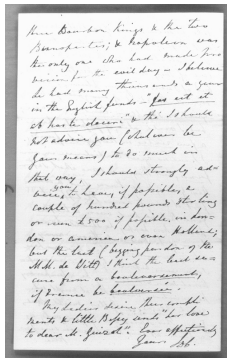 three Bourbon Kings & the two
Buonapartes; & Napoleon was
the only one who had made pro
vision for the evil day — I believe
he had many thousands a year
in the English funds —
& tho' I should
not advise you (whatever be
your means) to do much in
that way, I should strongly ad-
vise you to have, if possible, a
couple of hundred pounds sterling
or even £500 if possible, in Lon-
don or America or even Holland;
but the last (begging pardon of the
MM. de Witt) I think the least se-
cure from a bouleversement,
if France be bouleversée.
My ladies desire their compli
ments & little Bessy sends "her love
to dear M. Guizot". Ever affectionately
Yours